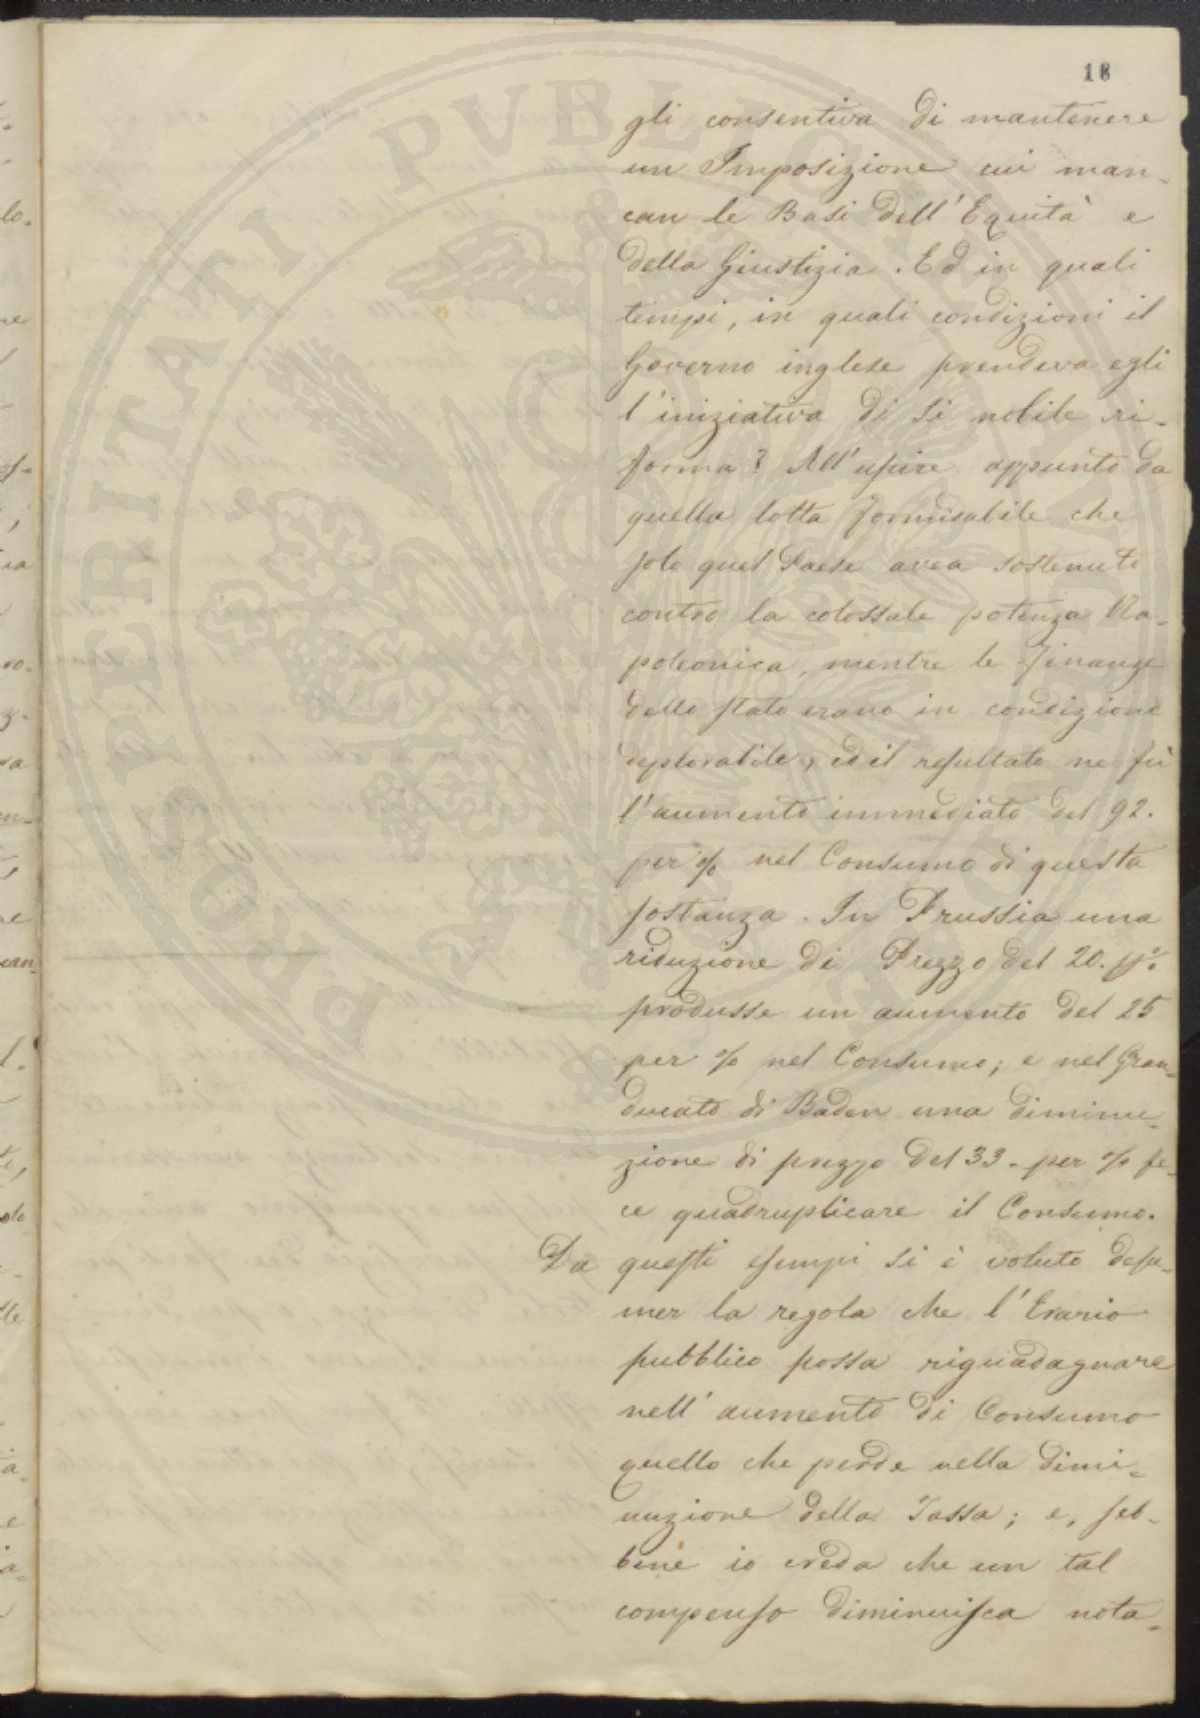 18
gli consentiva di mantenere
un Imposizione cui man-
can le Basi dell'Equità e
della Giustizia. Ed in quali
tempi, in quali condizioni il
Governo inglese prendeva egli
l'iniziativa di sì nobile ri-
forma? All'uscire appunto da
quella lotta formidabile che
solo quel Paese avea sostenuto
contro la colossale potenza Na-
poleonica, mentre le finanze
dello stato erano in condizione
deplorabile, ed il resultato ne fù
l'aumento immediato del 92.
per % nel Consumo di questa
sostanza. In Prussia una
riduzione di Prezzo del 20. p%
produsse un aumento del 25
per % nel Consumo; e nel Gran-
ducato di Baden una diminu-
zione di prezzo del 33. per % fe-
ce quadruplicare il Consumo.
Da questi esempi si è voluto desu-
mer la regola che l'Erario
pubblico possa riguadagnare
nell'aumento di Consumo
quello che perde nella dimi-
nuzione della Tassa; e, seb-
bene io creda che un tal
compenso diminuisca nota-
PROSPERITATI PVBLICAE